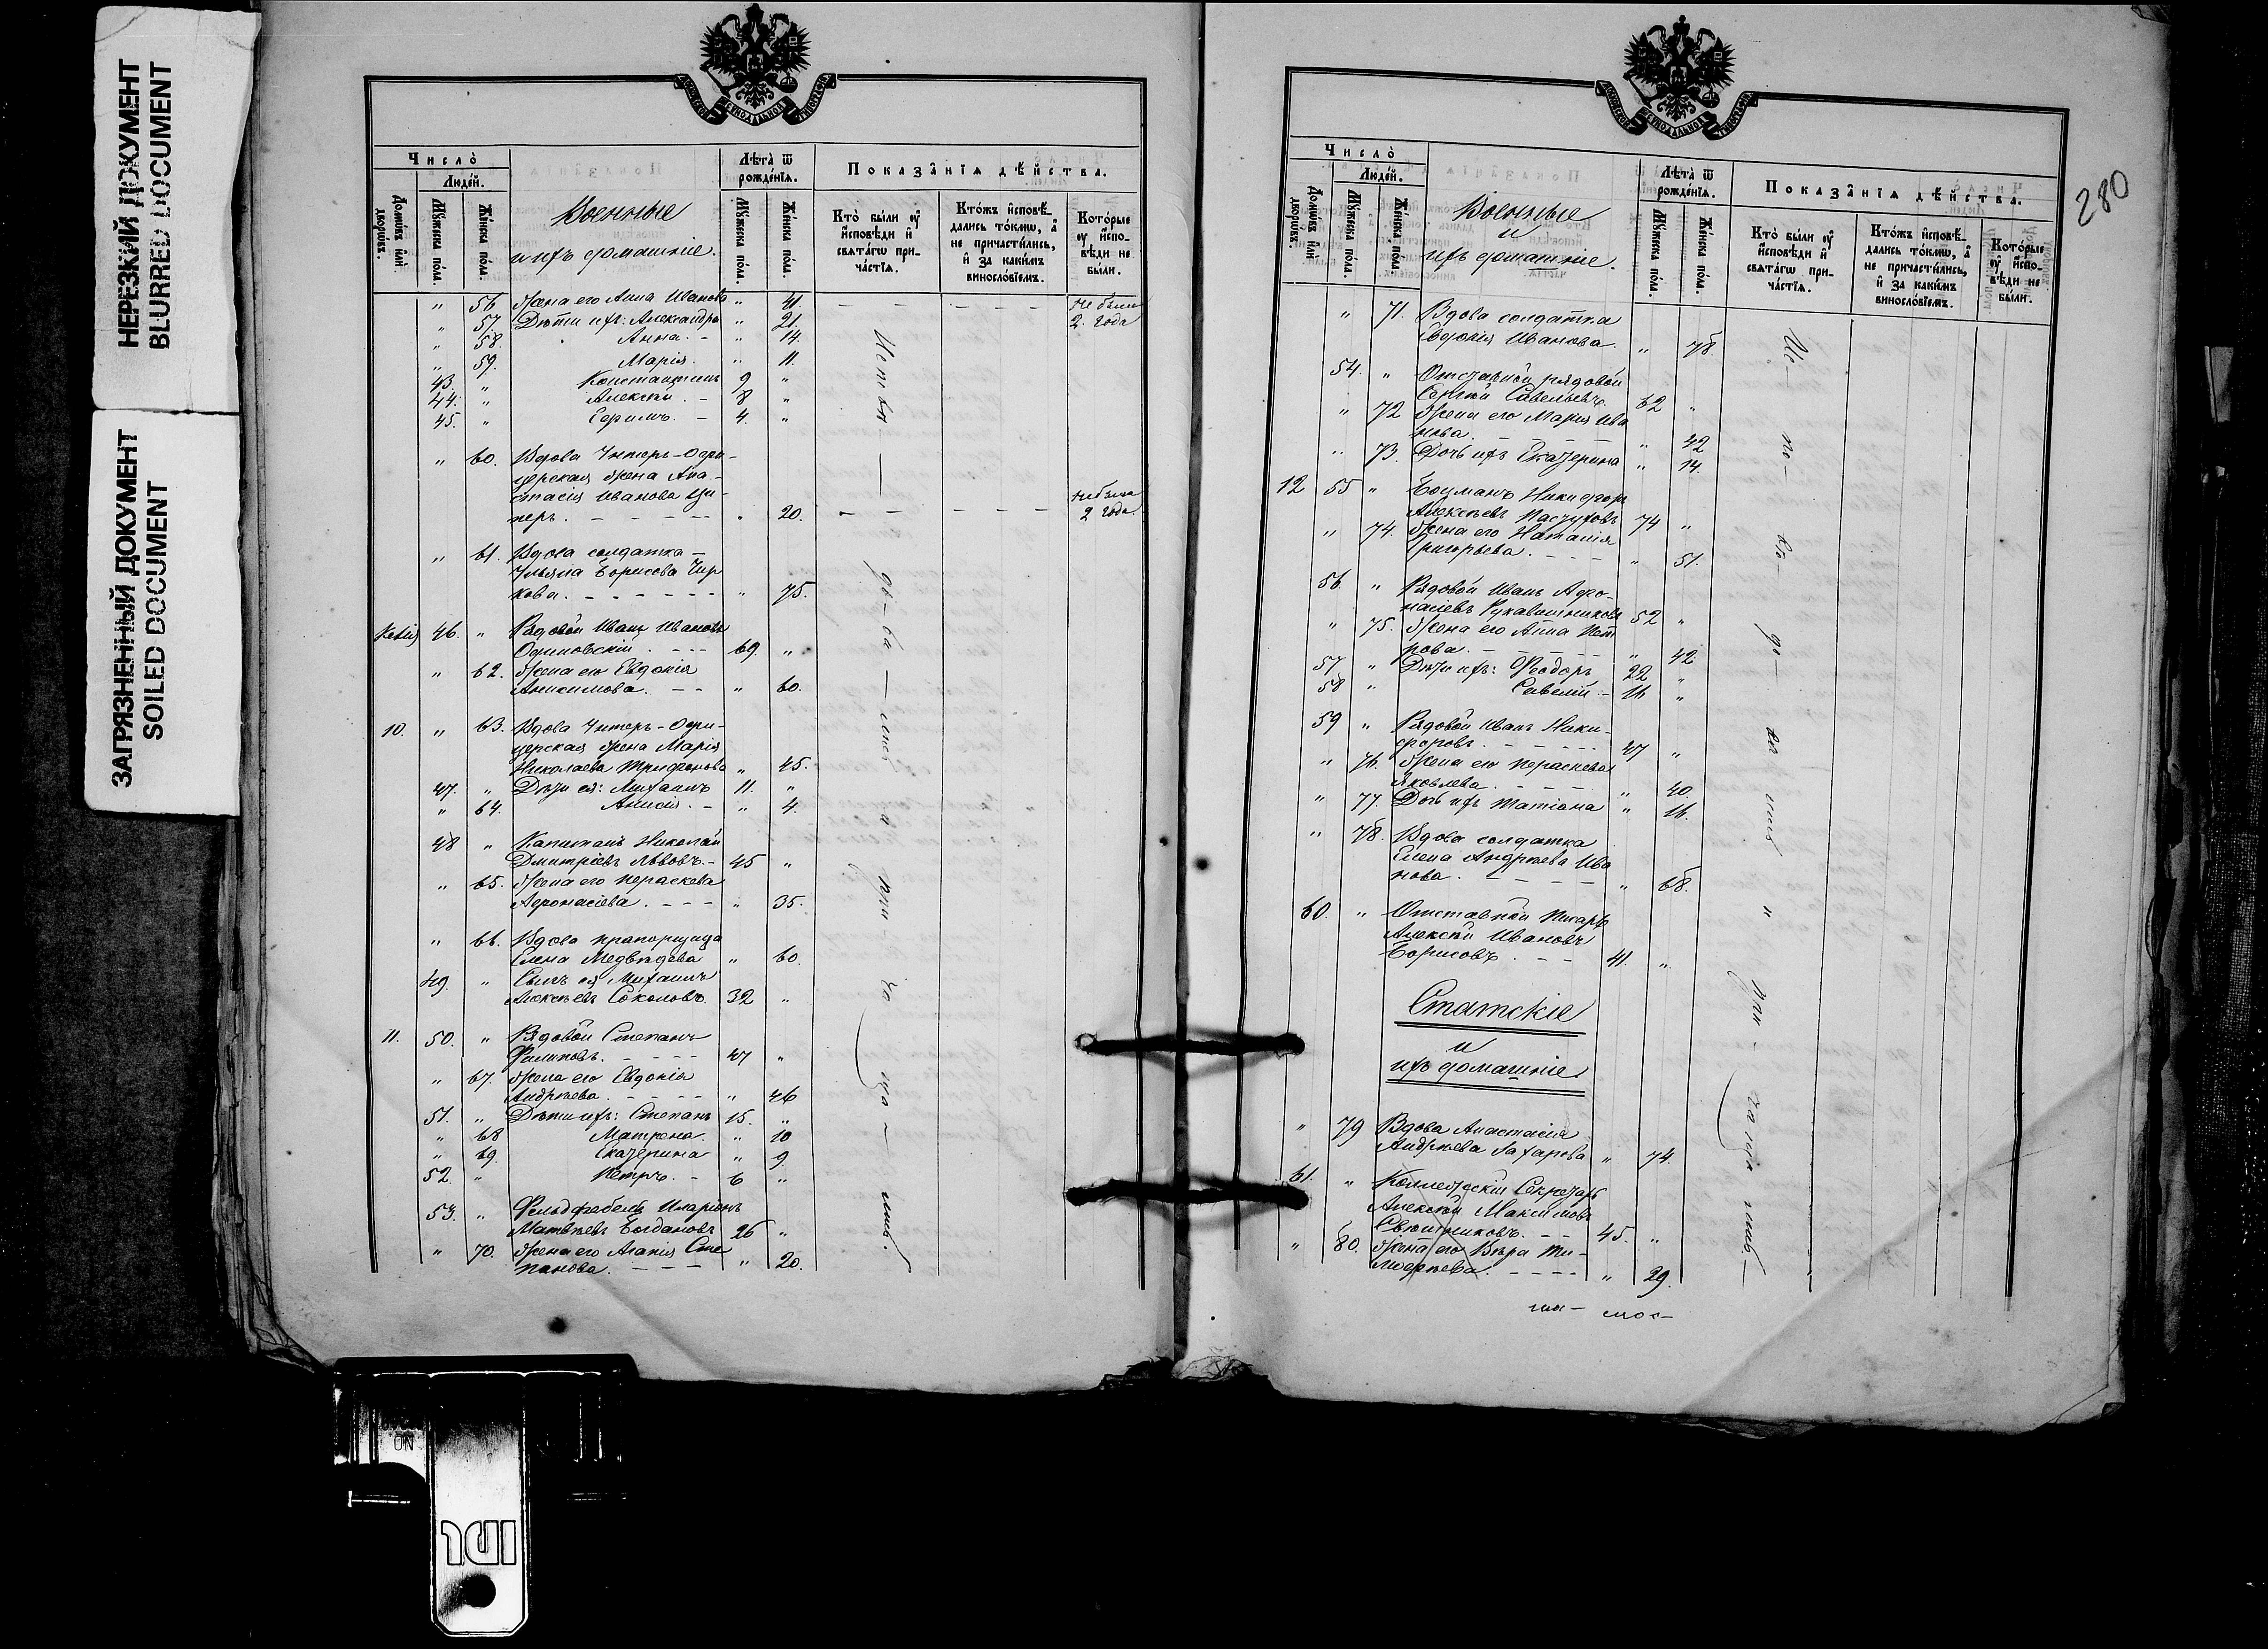 НЕРЕЗКИЙ ДОКУМЕНТ
BLURRED DOCUMENT
ЗАГРЯЗНЕННЫЙ ДОКУМЕНТ
SOILED DOCUMENT
Число̀
Людéй.
Домѡ́въ и҆лѝ дворѡ́въ.
Мꙋ́жеска по́ла.
Же́нска по́ла.
Военные
и ихъ домашніе.
Лѣта̀ ѿ рожде́нїѧ.
Мꙋ́жеска по́ла.
Же́нска по́ла.
Показа̑нїѧ дѣ́йства.
Кто̀ бы́ли ᲂу҆ и҆сповѣ́ди и҆ свѧта́гѡ прича́стїѧ.
Кто́жъ и҆сповѣ́дались то́кмѡ, а҆ не причасти́лись, и҆ за каки́мъ винословїемъ.
Кото́рые ᲂу҆ и҆сповѣ́ди не бы́ли.
" 56 Жена его Анна Иванова " 41. Не были
" 57. Дѣти ихъ: Александра " 21. 2. года
" 58. Анна. - " 14.
" 59. Марія. " 11.
43. " Константинъ 9 "
44. " Алексѣй. - 8 "
45. " Ефимъ. - 4. "
" 60. Вдова Унтеръ-Офи-
церская жена Ана-
стасія Иванова Ци-
перъ. " 20. Не была 2 года.
" 61. Вдова солдатка -
Ульяна Борисова Чир
кова. " 75.
46. " Рядовой Иванъ Ивановъ
Одиновскій 69 "
" 62. Жена его Евдокія
Анисимова. - - " 60.
10. " 63. Вдова Унтеръ-Офи-
церская жена Марія
Николаева Трифонова " 45.
47. " Дѣти ея: Михаилъ 11. "
" 64. Анисія. - " 4.
48 " Капитанъ Николай
Дмитріевъ Львовъ. - 45 "
" 65. Жена его Параскева
Афонасіева. - - - " 35.
" 66. Вдова прапорщица
Елена Медвѣдева " 60.
49. " Сынъ ея Михаилъ
Алексѣевъ Соколовъ. 32 "
11. 50. " Рядовой Степанъ
Филиповъ. 47 "
" 67. Жена его Евдокія
Андрѣева. " 46
51. " Дѣти ихъ: Степанъ 15. "
" 68 Матрена. " 10
" 69. Екатерина " 9.
52. " Петръ. - 6 "
53. " Фельдфебель Иларіонъ
Матвѣевъ Богдановъ 26 "
" 70. Жена его Агапія Сте
панова. " 20.
280
Число̀
Людéй.
Домѡ́въ и҆лѝ дворѡ́въ.
Мꙋ́жеска по́ла.
Же́нска по́ла.
Военные
и
ихъ домашніе.
Лѣта̀ ѿ рожде́нїѧ.
Мꙋ́жеска по́ла.
Же́нска по́ла.
Показа̑нїѧ дѣ́йства.
Кто̀ бы́ли ᲂу҆ и҆сповѣ́ди и҆ свѧта́гѡ прича́стїѧ.
Кто́жъ и҆сповѣ́дались то́кмѡ, а҆ не причасти́лись, и҆ за каки́мъ винословїемъ.
Кото́рые ᲂу҆ и҆сповѣ́ди не бы́ли.
" 71. Вдова солдатка
Евдокія Иванова. " 78.
54. " Отставной рядовой
Сергѣй Савельевъ 62 "
" 72 Жена его Марія Ива
нова. " 42
" 73. Дочь ихъ Екатерина " 14.
12 55 " Боцманъ Никифоръ
Алексѣевъ Пастуховъ 74 "
" 74. Жена его Наталія
Григорьева. " 51.
56. " Рядовой Иванъ Афо-
насьевъ Рукавишниковъ 52 "
" 75. Жена его Анна Пет
рова. " 42
57 " Дѣти ихъ: Ѳеодоръ 22 "
58 " Савелій. - 16 "
59 " Рядовой Иванъ Ники-
форовъ. 47 "
" 76. Жена его Параскева
Яковлева. " 40.
" 77. Дочь ихъ Татіана " 16.
" 78. Вдова солдатка
Елена Андрѣева Ива
нова. " 68.
60. " Отставной писарь
Алексѣй Ивановъ
Борисовъ. 41. "
Статскіе
и
ихъ домашніе.
" 79 Вдова Анастасія
Андрѣева Захарова " 74.
61. " Коллежскій Секретарь
Алексѣй Максимовъ
Свѣшниковъ. - - 45. "
" 80. Жена его Вѣра Ти-
мофѣева. " 29.
ON
IDL